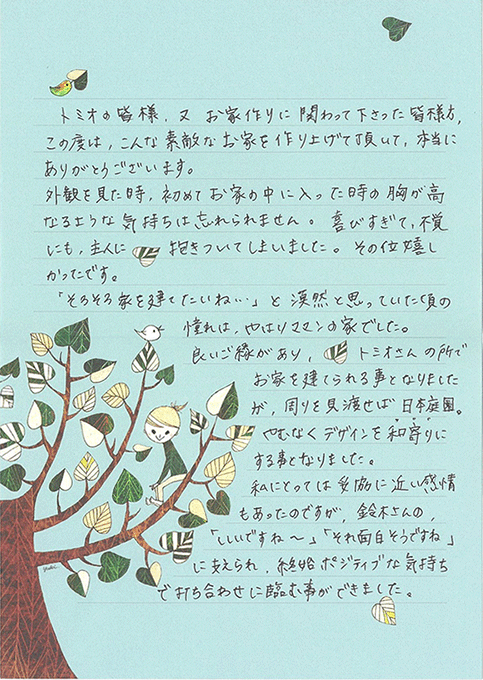 トミオの皆様、又 お家作りに 関わって下さった皆様方、
この度は、こんな素敵なお家を作り上げて頂いて、本当に
ありがとうございます。
外観を見た時、初めてお家の中に入った時の胸が高
なるような気持ちは忘れられません。喜びすぎて、不覚
にも、主人に 抱きついてしまいました。その位嬉し
かったです。
「そろそろ家を建てたいね…」と漠然と思っていた頃の
憧れは、やはりママンの家でした。
良いご縁があり、 トミオさんの所で
お家を建てられる事となりました
が、周りを見渡せば 日本庭園。
やむなくデザインを和寄りに
する事となりました。
私にとっては妥協に近い感情
もあったのですが、鈴木さんの、
「いいですね〜」「それ面白そうですね」
に支えられ、終始ポジティブな気持ち
で打ち合わせに臨む事ができました。